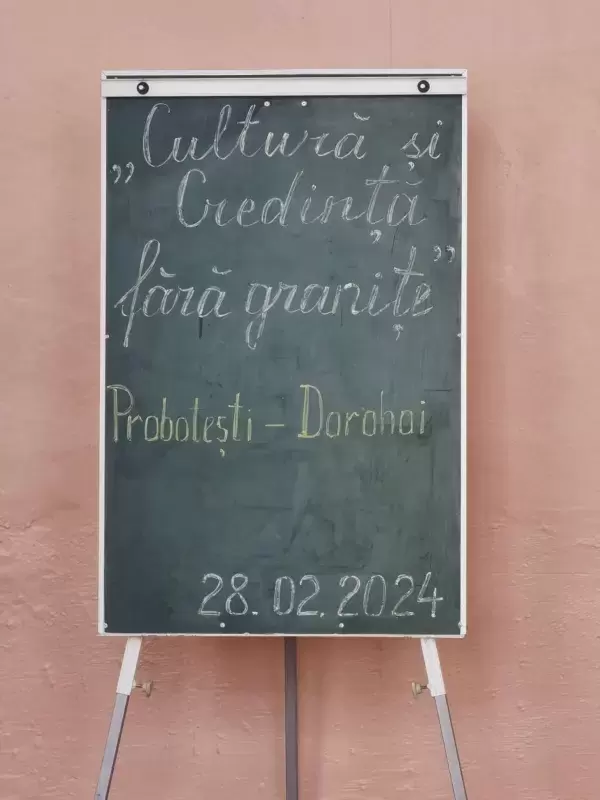 „Cultură și
Credință
fără granițe”
Probotești – Dorohoi
28.02.2024